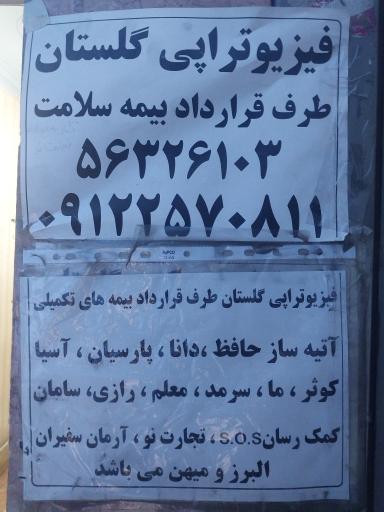 فیزیوتراپی گلستان
طرف قرارداد بیمه سلامت
۵۶۳۲۶۱۰۳
۰۹۱۲۲۵۷۰۸۱۱
فیزیوتراپی گلستان طرف قرارداد بیمه های تکمیلی
آتیه ساز حافظ ،دانا ، پارسیان ، آسیا
کوثر ، ما ، سرمد ، معلم ، رازی، سامان
کمک رسانs.o.s ، تجارت نو ، آرمان سفیران
البرز و میهن می باشد